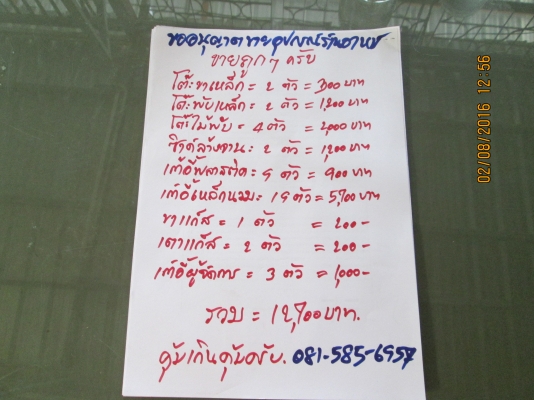 ขออนุญาตขายอุปกรณ์ร้านอาหาร
ขายถูกๆ ครับ
โต๊ะขาเหล็ก = 2 ตัว = 300 บาท
โต๊ะพับเหล็ก = 2 ตัว = 1,200 บาท
โต๊ะไม้พับ = 4 ตัว = 2,000 บาท
ซิงค์ล้างจาน = 2 ตัว = 1,200 บาท
เก้าอี้พลาสติก = 9 ตัว = 900 บาท
เก้าอี้เหล็กนวม = 19 ตัว = 5,700 บาท
ขาแก๊ส = 1 ตัว = 200-
เตาแก๊ส = 2 ตัว = 200-
เก้าอี้ผู้จัดการ = 3 ตัว = 1,000-
รวม = 12,700 บาท.
คุ้มเกินคุ้มครับ. 081-585-6957
02/08/2016 12:56